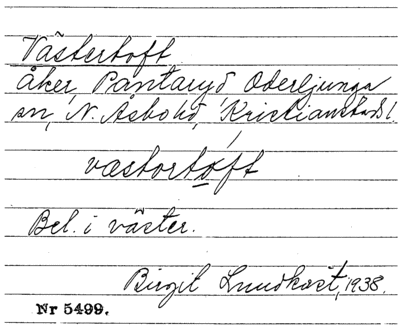 Västertoft
åker, Pantaryd Oderljunga
sn, N. Åsbo hd, Kristianstads l.
væstortoft
Bel. i väster.
Birgit Lundkvist, 1938.
Nr 5499.